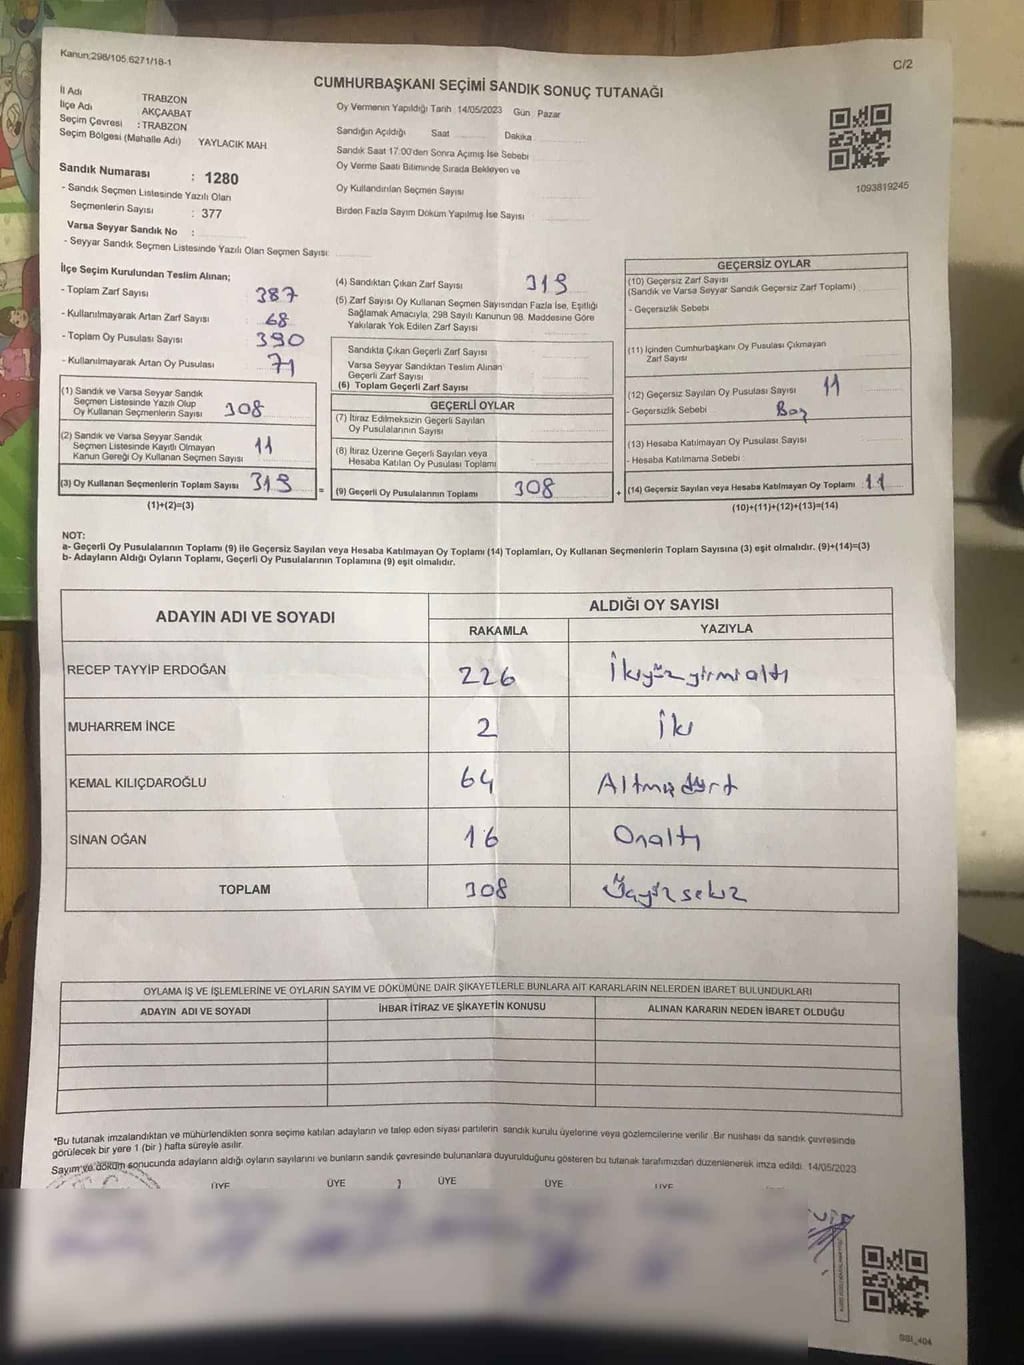 Kanun;298/105,6271/18-1
C/2
CUMHURBAŞKANI SEÇİMİ SANDIK SONUÇ TUTANAĞI
İl Adı TRABZON
İlçe Adı AKÇAABAT
Seçim Çevresi : TRABZON
Seçim Bölgesi (Mahalle Adı) YAYLACIK MAH
Oy Vermenin Yapıldığı Tarih 14/05/2023 Gün Pazar
Sandığın Açıldığı Saat Dakika
Sandık Saat 17:00'den Sonra Açımış İse Sebebi
Oy Verme Saati Bitiminde Sırada Bekleyen ve
Oy Kullandırılan Seçmen Sayısı
Birden Fazla Sayım Döküm Yapılmış İse Sayısı
1093819245
Sandık Numarası : 1280
- Sandık Seçmen Listesinde Yazılı Olan
Seçmenlerin Sayısı : 377
Varsa Seyyar Sandık No :
- Seyyar Sandık Seçmen Listesinde Yazılı Olan Seçmen Sayısı:
İlçe Seçim Kurulundan Teslim Alınan;
- Toplam Zarf Sayısı 387
- Kullanılmayarak Artan Zarf Sayısı 68
- Toplam Oy Pusulası Sayısı 390
- Kullanılmayarak Artan Oy Pusulası 71
(1) Sandık ve Varsa Seyyar Sandık
Seçmen Listesinde Yazılı Olup
Oy Kullanan Seçmenlerin Sayısı 308
(2) Sandık ve Varsa Seyyar Sandık
Seçmen Listesinde Kayıtlı Olmayan
Kanun Gereği Oy Kullanan Seçmen Sayısı 11
(3) Oy Kullanan Seçmenlerin Toplam Sayısı 319 =
(1)+(2)=(3)
(4) Sandıktan Çıkan Zarf Sayısı 319
(5) Zarf Sayısı Oy Kullanan Seçmen Sayısından Fazla İse, Eşitliği
Sağlamak Amacıyla, 298 Sayılı Kanunun 98. Maddesine Göre
Yakılarak Yok Edilen Zarf Sayısı
Sandıkta Çıkan Geçerli Zarf Sayısı
Varsa Seyyar Sandıktan Teslim Alınan
Geçerli Zarf Sayısı
(6) Toplam Geçerli Zarf Sayısı
GEÇERLİ OYLAR
(7) İtiraz Edilmeksizin Geçerli Sayılan
Oy Pusulalarının Sayısı
(8) İtiraz Üzerine Geçerli Sayılan veya
Hesaba Katılan Oy Pusulası Toplamı
(9) Geçerli Oy Pusulalarının Toplamı 308 +
GEÇERSİZ OYLAR
(10) Geçersiz Zarf Sayısı
(Sandık ve Varsa Seyyar Sandık Geçersiz Zarf Toplamı)
- Geçersizlik Sebebi
(11) İçinden Cumhurbaşkanı Oy Pusulası Çıkmayan
Zarf Sayısı
(12) Geçersiz Sayılan Oy Pusulası Sayısı 11
- Geçersizlik Sebebi Boş
(13) Hesaba Katılmayan Oy Pusulası Sayısı
- Hesaba Katılmama Sebebi :
(14) Geçersiz Sayılan veya Hesaba Katılmayan Oy Toplamı : 11
(10)+(11)+(12)+(13)=(14)
NOT:
a- Geçerli Oy Pusulalarının Toplamı (9) ile Geçersiz Sayılan veya Hesaba Katılmayan Oy Toplamı (14) Toplamları, Oy Kullanan Seçmenlerin Toplam Sayısına (3) eşit olmalıdır. (9)+(14)=(3)
b- Adayların Aldığı Oyların Toplamı, Geçerli Oy Pusulalarının Toplamına (9) eşit olmalıdır.
ADAYIN ADI VE SOYADI ALDIĞI OY SAYISI
RAKAMLA YAZIYLA
RECEP TAYYİP ERDOĞAN 226 İkiyüzyirmialtı
MUHARREM İNCE 2 İki
KEMAL KILIÇDAROĞLU 64 Altmışdört
SİNAN OĞAN 16 Onaltı
TOPLAM 308 Üçyüzsekiz
OYLAMA İŞ VE İŞLEMLERİNE VE OYLARIN SAYIM VE DÖKÜMÜNE DAİR ŞİKAYETLERLE BUNLARA AİT KARARLARIN NELERDEN İBARET BULUNDUKLARI
ADAYIN ADI VE SOYADI İHBAR İTİRAZ VE ŞİKAYETİN KONUSU ALINAN KARARIN NEDEN İBARET OLDUĞU
*Bu tutanak imzalandıktan ve mühürlendikten sonra seçime katılan adayların ve talep eden siyasi partilerin sandık kurulu üyelerine veya gözlemcilerine verilir. Bir nushası da sandık çevresinde
görülecek bir yere 1 (bir ) hafta süreyle asılır.
Sayım ve döküm sonucunda adayların aldığı oyların sayılarını ve bunların sandık çevresinde bulunanlara duyurulduğunu gösteren bu tutanak tarafımızdan düzenlenerek imza edildi. 14/05/2023
ÜYE ÜYE ÜYE ÜYE ÜYE